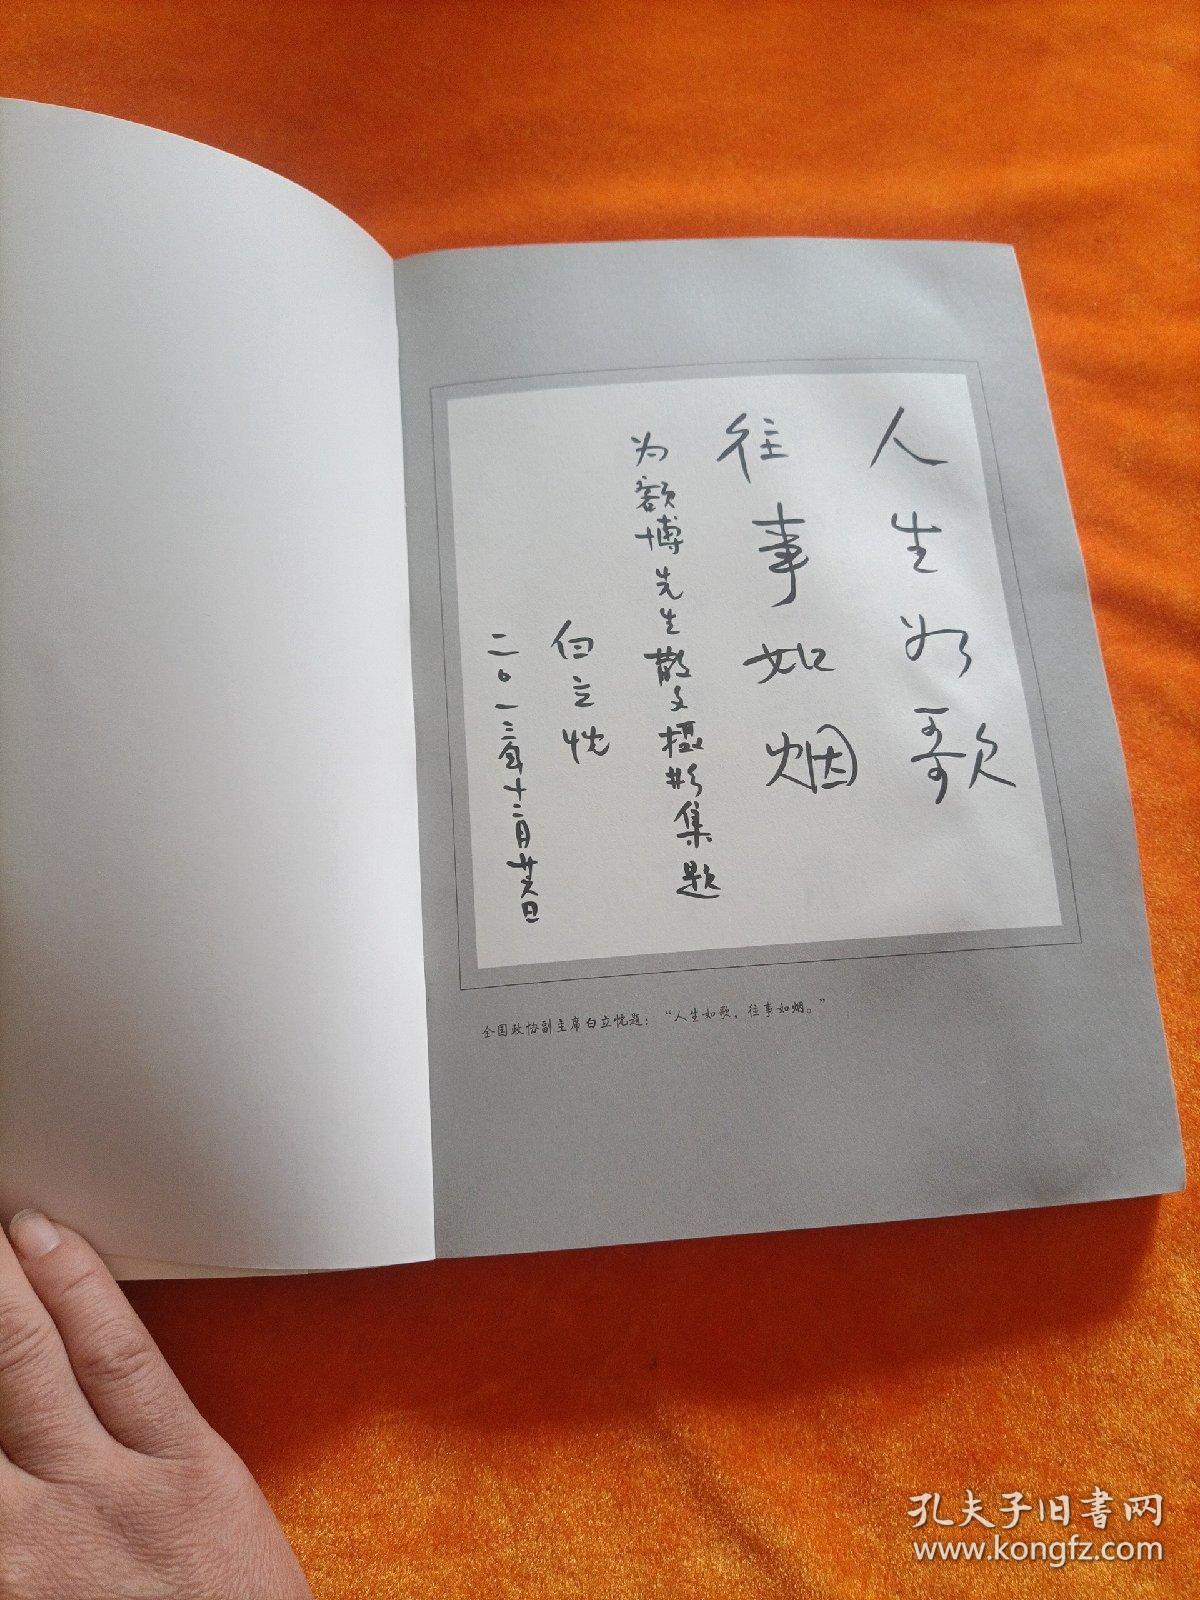 人生如歌
往事如烟
为额博先生散文摄影集题
白立忱
二〇一三年十二月廿六日
全国政协副主席白立忱题：“人生如歌，往事如烟。”
孔夫子旧书网
www.kongfz.com